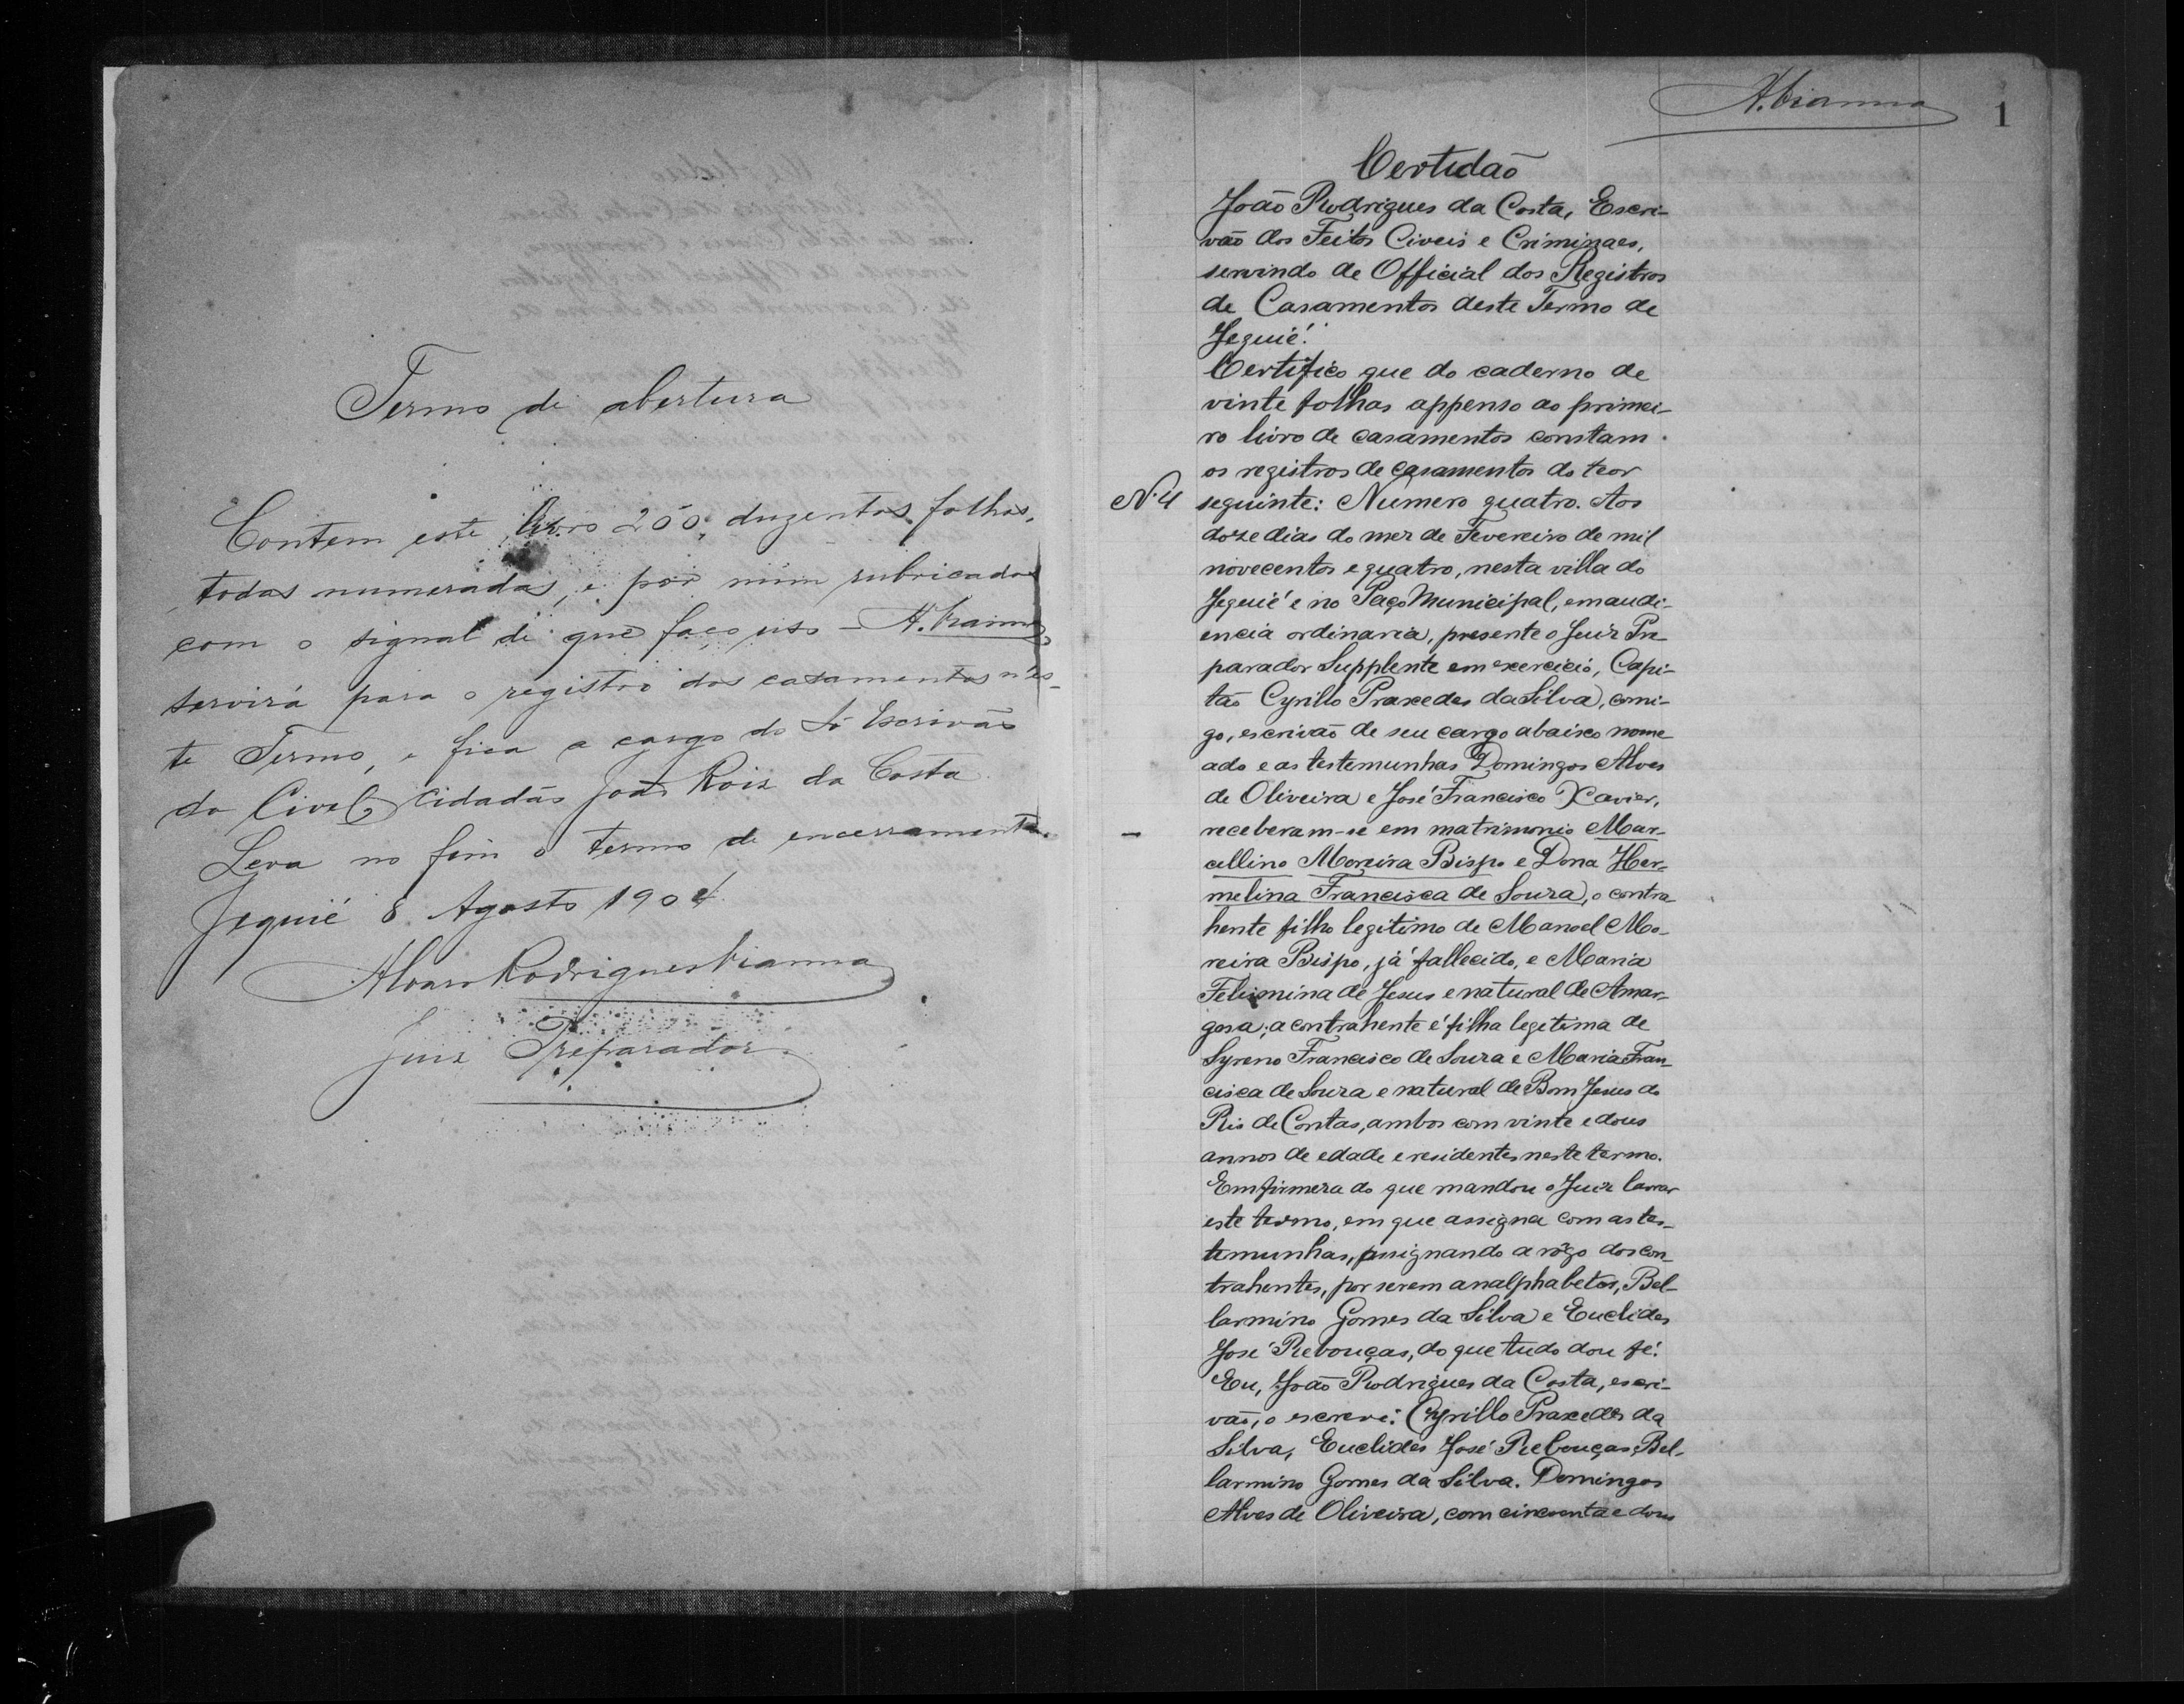 Termo de abertura
Contem este livro 200, duzentas folhas,
todas numeradas, e por mim rubricadas
com o signal de que faço uso - A. Vianna,
servirá para o registro dos casamentos n'es-
te Termo, e fica a cargo do Sr Escrivão
do Civel, cidadão João Roiz da Costa
Leva no fim o termo de encerramento.
Jequié 8 Agosto 1904
Alvaro Rodrigues Vianna
Juiz Preparador
A. Vianna
1
Certidão
João Rodrigues da Costa, Escri-
vão dos Feitos Civeis e Criminaes,
servindo de Official dos Registros
de Casamentos deste Termo de
Jequié.
Certifico que do caderno de
vinte folhas appenso ao primei-
ro livro de casamentos constam
os registros de casamentos do teor
Nº 4 seguinte: Numero quatro. Aos
doze dias do mez de Fevereiro de mil
novecentos e quatro, nesta villa do
Jequié e no Paço Municipal, em audi-
encia ordinaria, presente o Juiz Pre-
parador Supplente em exercicio, Capi-
tão Cyrillo Praxedes da Silva, comi-
go, escrivão de seu cargo abaixo nome
ado e as testemunhas Domingos Alves
de Oliveira e José Francisco Xavier,
receberam-se em matrimonio Mar-
cellino Moreira Bispo e Dona Her-
melina Francisca de Souza, o contra-
hente filho legitimo de Manoel Mo-
reira Bispo, já fallecido, e Maria
Felismina de Jesus e natural de Amar-
gosa; a contrahente é filha legitima de
Syreno Francisco de Souza e Maria Fran-
cisca de Souza e natural de Bom Jesus do
Rio de Contas, ambos com vinte e dous
annos de edade e residentes neste termo.
Em firmeza do que mandou o Juiz lavrar
este termo, em que assigna com as tes-
temunhas, assignando a rôgo dos con-
trahentes, por serem analphabetos, Bel-
larmino Gomes da Silva e Euclides
José Rebouças, do que tudo dou fé.
Eu, João Rodrigues da Costa, escri-
vão, o escrevi. Cyrillo Praxedes da
Silva, Euclides José Rebouças, Bel-
larmino Gomes da Silva. Domingos
Alves de Oliveira, com cincoenta e dous